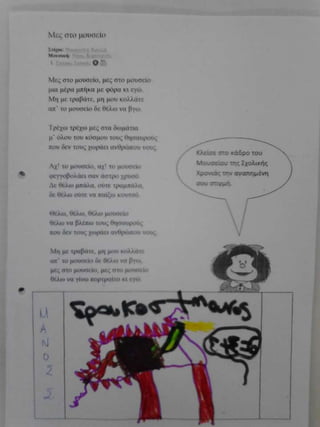 Μες στο μουσείο
Στίχοι:
Μουσική:
Μες στο μουσείο, μες στο μουσείο
μια μέρα μπήκα με φόρα κι εγώ.
Μη με τραβάτε, μη μου κολλάτε
απ' το μουσείο δε θέλω να βγω.
Τρέχω τρέχω μες στα δωμάτια
μ' όλους του κόσμου τους θησαυρούς
που δεν τους χωράει ανθρώπου νους.
Αχ! το μουσείο, αχ! το μουσείο
φεγγοβολάει σαν άστρο χρυσό.
Δε θέλω μπάλα, ούτε τραμπάλα,
δε θέλω ούτε να παίξω κουτσό.
Θέλω, θέλω, θέλω μουσείο
θέλω να βλέπω τους θησαυρούς
που δεν τους χωράει ανθρώπου νους.
Μη με τραβάτε, μη μου κολλάτε
απ' το μουσείο δε θέλω να βγω,
μες στο μουσείο, μες στο μουσείο
θέλω να γίνω πορτραίτο κι εγώ.
Κλείσε στο κάδρο του
Μουσείου της Σχολικής
Χρονιάς την αγαπημένη
σου στιγμή.
ΜΑΝΟΣ Σ